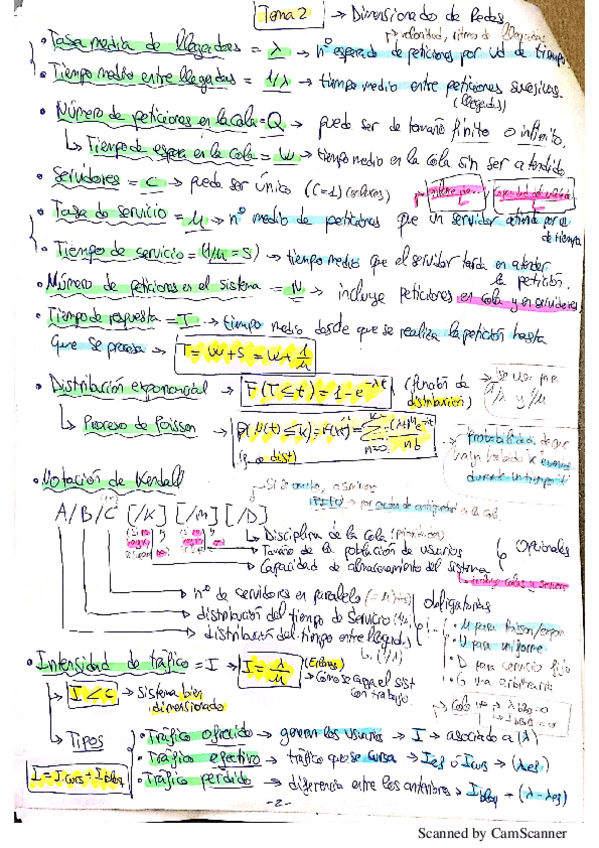 Tema 2 → Dimensionado de Redes
→ velocidad, ritmo de llegadas
• Tasa media de llegadas = λ → nº esperado de peticiones por ud de tiempo
• Tiempo medio entre llegadas = 1/λ → tiempo medio entre peticiones sucesivas.
(llegadas)
• Número de peticiones en la cola = Q → puede ser de tamaño finito o infinito.
↳ Tiempo de espera en la cola = W → tiempo medio en la cola sin ser atendido
• Servidores = C → puede ser único (C=1) (enlaces)
• Tasa de servicio = μ → nº medio de peticiones que un servidor atiende por ud
de tiempo
• Tiempo de servicio = (1/μ = S) → tiempo medio que el servidor tarda en atender
la petición.
• Número de peticiones en el sistema = N → incluye peticiones en cola y en servidores
• Tiempo de respuesta = T → tiempo medio desde que se realiza la petición hasta
que se procesa → T = W + S = W + 1/μ
• Distribución exponencial → F(T≤t) = 1-e^-λt (función de
distribución)
→ se usa para
1/λ y 1/μ
↳ Proceso de Poisson →
Probabilidad de que
haya habido K eventos
durante un tiempo t
• Notación de Kendall
A/B/C [/K] [/M] [/D]
↳ Disciplina de la cola
→ Tamaño de la población de usuarios
→ Capacidad de almacenamiento del sistema
Opcionales
→ nº de servidores en paralelo
→ distribución del tiempo de servicio
→ distribución del tiempo entre llegadas
(1/λ)
obligatorias
• M para Poisson/expon
• U para uniforme
• D para servicio fijo
• G para arbitraria
• Intensidad de tráfico = I → I = λ/μ (Erlangs)
→ Cómo se carga el sist
con trabajo
→ I < C → Sistema bien
dimensionado
→ Tipos
• Tráfico ofrecido → generan los usuarios → I → asociado a (λ)
• Tráfico efectivo → tráfico que se cursa → Ief ó Icurs → (λef)
• Tráfico perdido → diferencia entre los anteriores → Ibloq → (λ - λef)
I = Icurs + Ibloq
-2-
Scanned by CamScanner